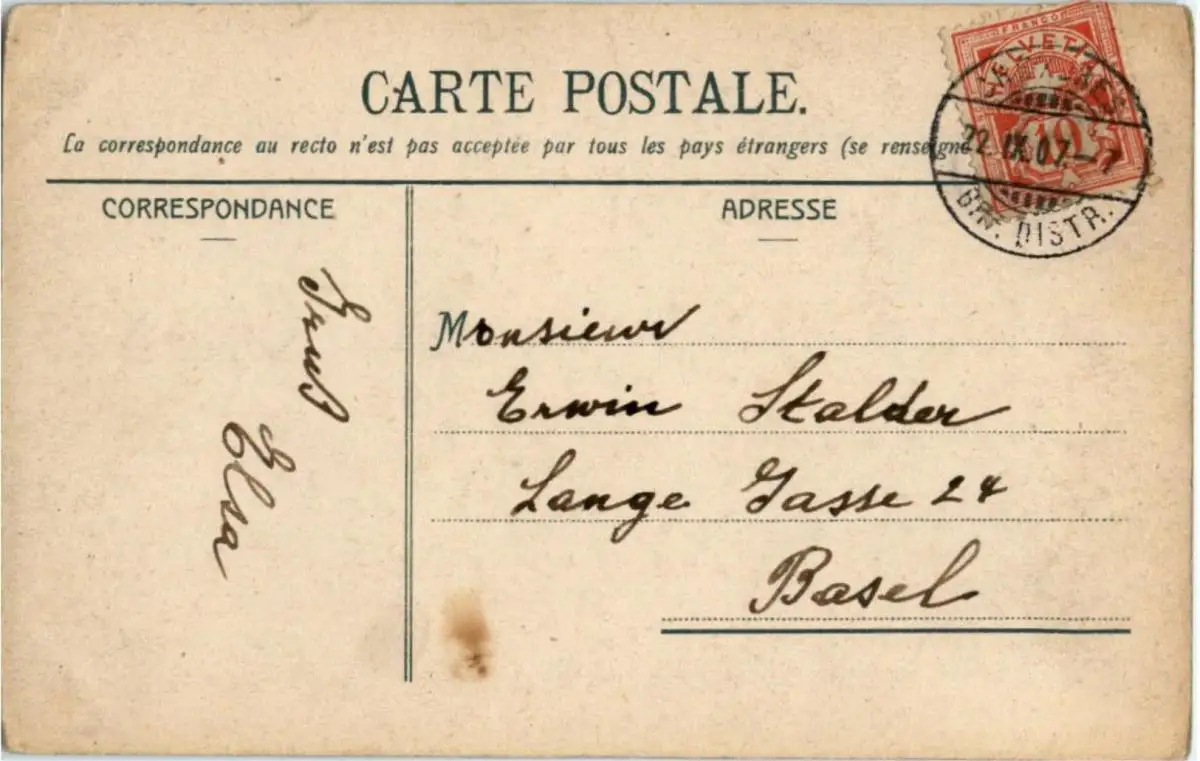 CARTE POSTALE.
La correspondance au recto n'est pas acceptée par tous les pays étrangers (se renseigne
CORRESPONDANCE
ADRESSE
FRANCO
HELVETIA
10
22.IX.07.-7
DISTR.
Monsieur
Erwin Stalder
Lange Gasse 24
Basel
Gruss
Elsa